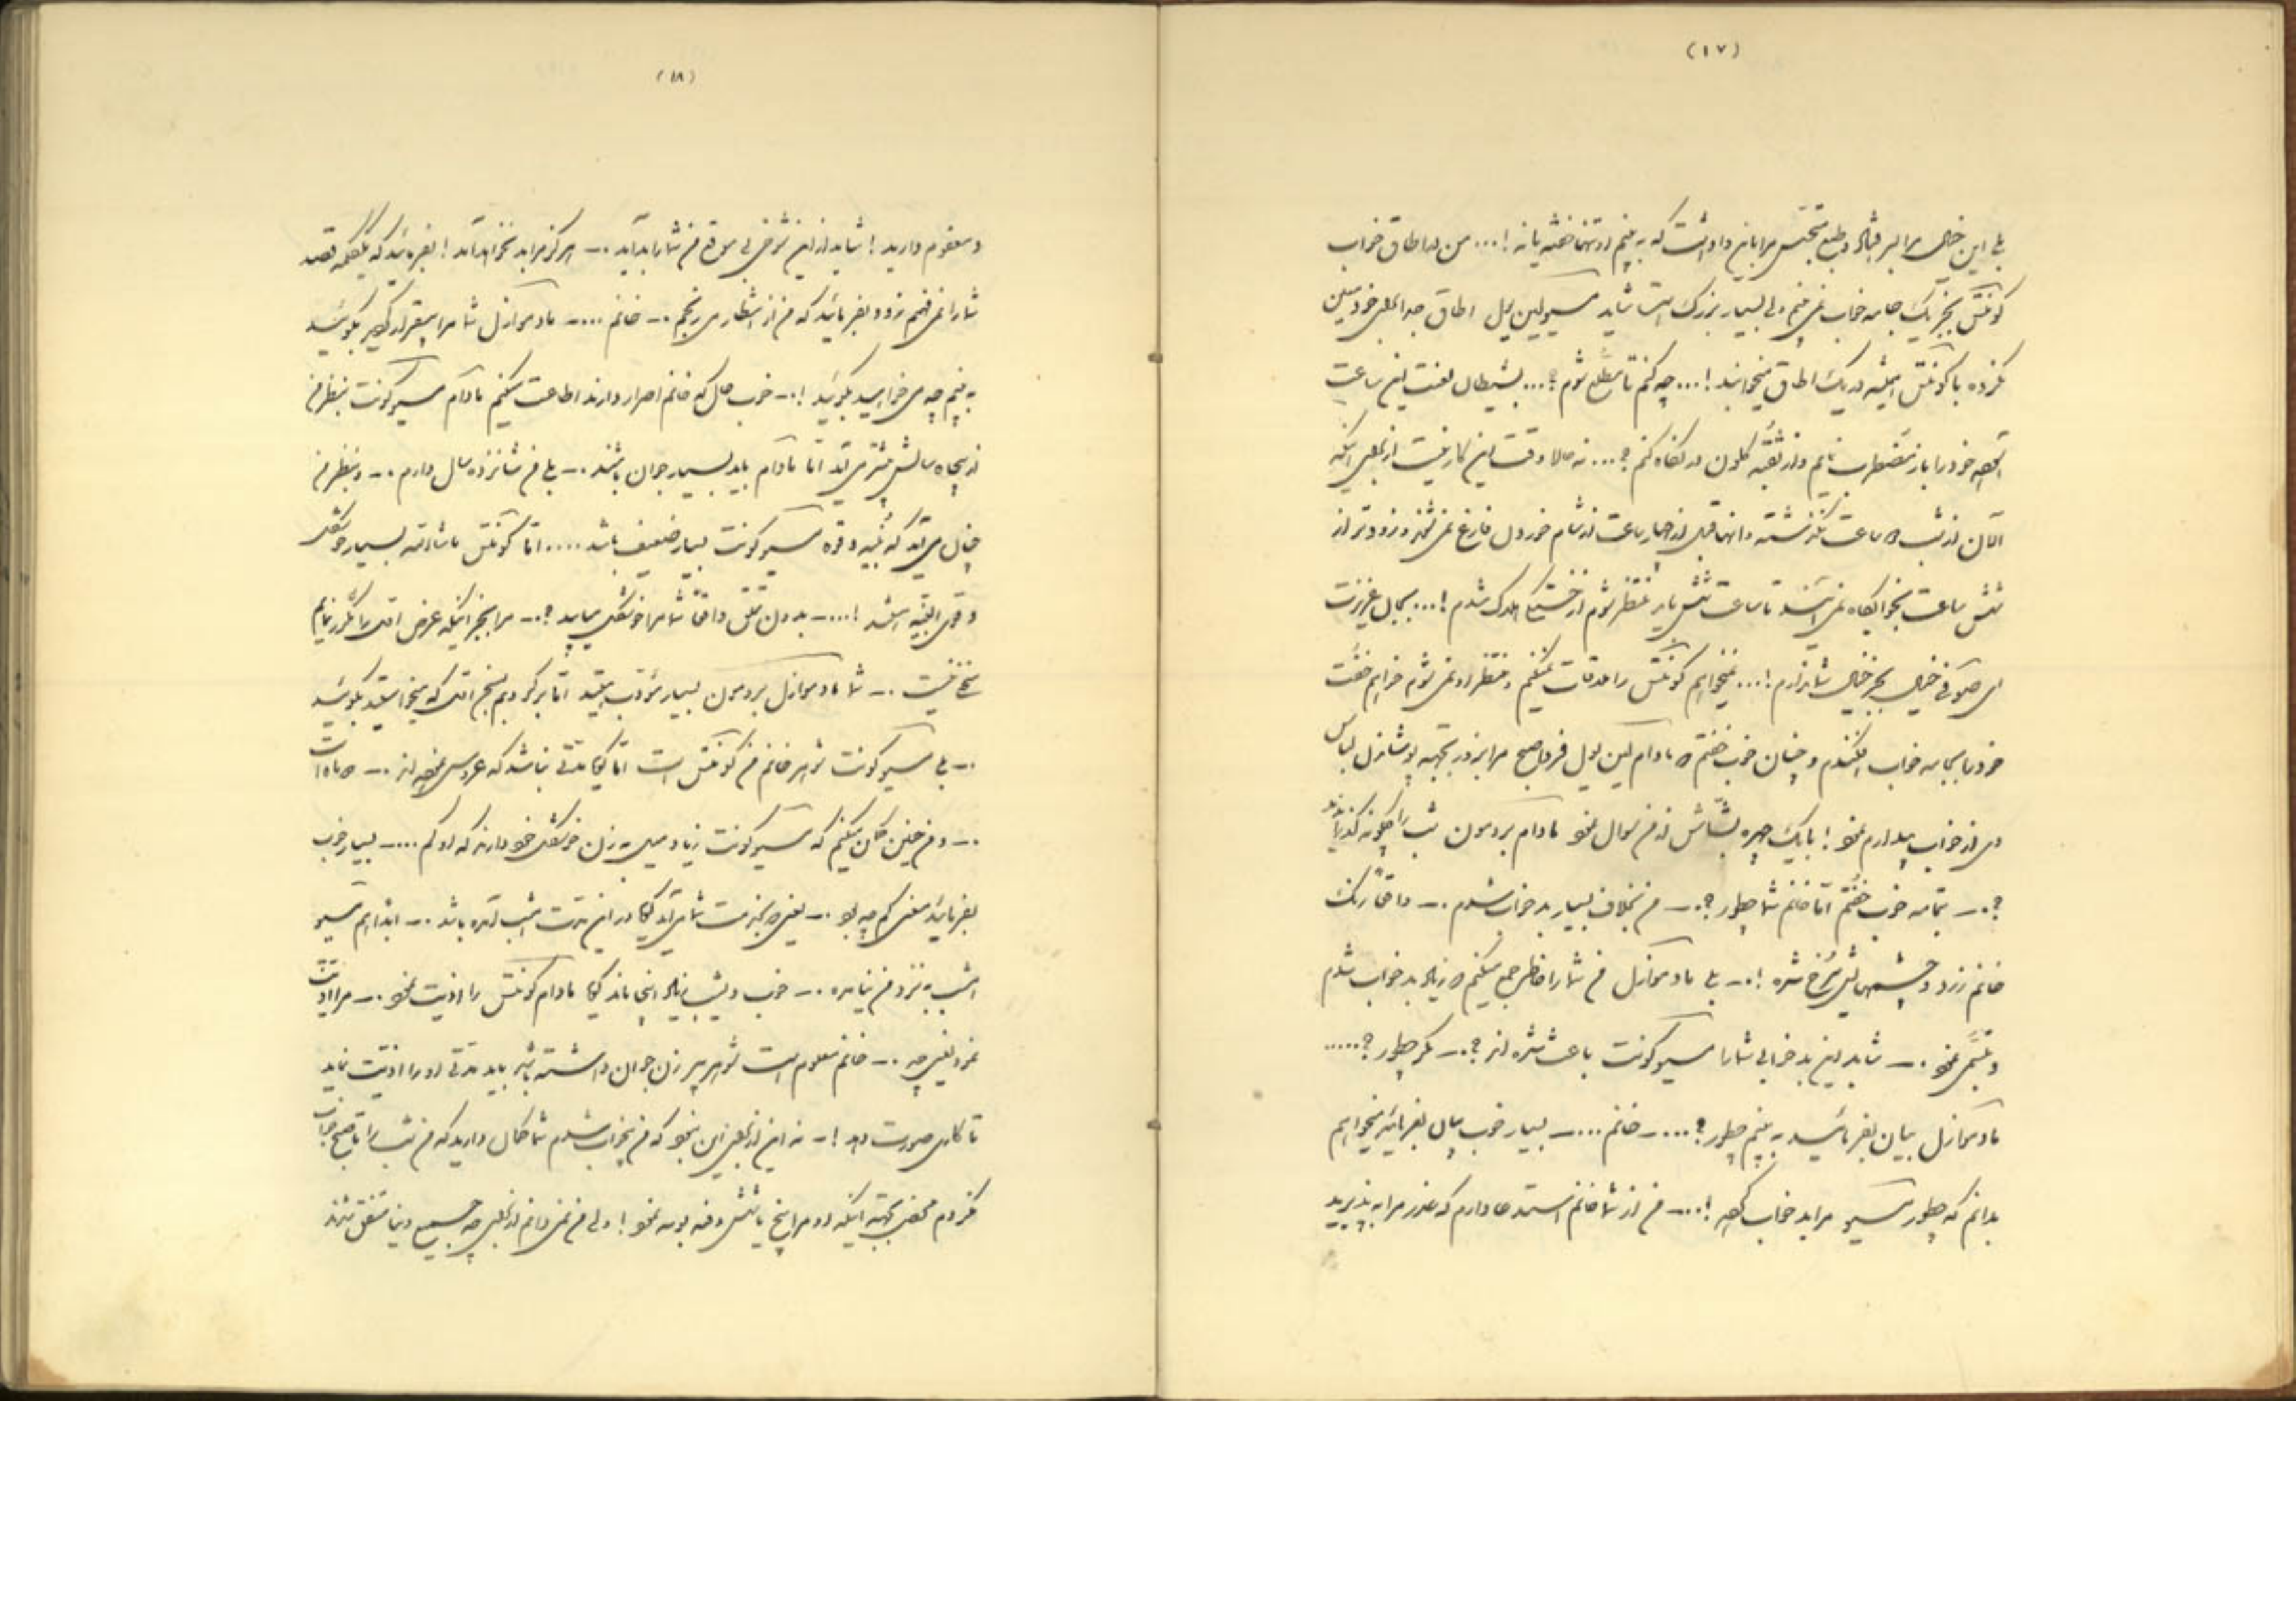 (۱۷)
بلی این خیال مرا بسر افتاد و طبع تجسس مرا باین داداشت که به بینم او تنها خفته یا نه !... من در اطاق خواب
کونتس بجز یک جامه خواب نمی بینم ولی بسیار بزرگ است شاید مسیو لین لول اطاق جداگانه خود معین
نکرده با کونتس همیشه در یک اطاق میخوابند !... چه کنم تا مطلع شوم ؟... بشیطان لعنت این ساعت
خود را باز مضطرب نمایم و از ثقبه کلون در نگاه کنم ؟... نه حالا وقت این کار نیست از برای اینکه
الان از شب ساعت نگذشته و آنها قبل از چهار ساعت از شام خوردن فارغ نمی شوند و زودتر از
شش ساعت بخوابگاه نمی آیند تا ساعت شش باید منتظر شوم از خستگی هلاک شدم !... بجان عزیزت
ای صوفی خیالی بجز خیال شما ندارم !... نمیخواهم کونتس را ملاقات بکنم و منتظر او نمی شوم خواهم خفت
خود را بجامه خواب افکندم و چنان خوب خفتم که مادام لین لول فردا صبح مرا بزور بجهة پوشاندن لباس
وی از خواب بیدارم نمود ! با یک چهره بشاش از من سوال نمود مادام بردمون شب را چگونه گذراندید
؟ ـ بتمامه خوب خفتم اما خانم شما چطور ؟ ـ من بخلاف بسیار بد خواب شدم ـ واقعاً رنگ
خانم زرد و چشمهاش سرخ شده ! ـ بلی مادموازل من شما را خاطر جمع میکنم که زیاد بد خواب شدم
و تبسمی نمود ـ شاید این بد خوابی شما را مسیو کونت باعث شده اند ؟ ـ مگر چطور ؟.....
مادموازل بیان بفرمائید به بینم چطور ؟.... ـ خانم .... ـ بسیار خوب بیان بفرمائید میخواهم
بدانم که چطور مسیو مرا بد خواب کرده !... ـ من از شما خانم استدعا دارم که عذر مرا به پذیرید
(۱۸)
و معفوم دارید ! شاید از این شوخی بی موقع من شما را بد آید ـ هرگز مرا بد نخواهد آمد ! بفرمائید که یک کلمه قصد
شما را نمی فهمم زود بفرمائید که من از انتظار می رنجم ـ خانم .... ـ مادموازل شما مرا بیقرار کردید بگوئید
به بینم چه می خواهید بگوئید ! ـ خوب حال که خانم اصرار دارند اطاعت میکنم مادام مسیو کونت بنظر من
از پنجاه سالش بیشتر می آید اما مادام باید بسیار جوان باشند ـ بلی من شانزده سال دارم ـ و بنظر من
چنان می آید که بنیه و قوه مسیو کونت بسیار ضعیف باشد .... اما کونتس ماشاءالله بسیار خوشگل
و قوی البنیه هستند !... ـ بدون تملق واقعاً شما مرا خوشگل میابید ؟ ـ مرا بجز اینکه عرض اول را مکرر نمایم
سخنی نیست ـ شما مادموازل بردمون بسیار مؤدب هستید اما برگردیم بسخن اول که میخواستید بگوئید
ـ بلی مسیو کونت شوهر خانم من کونتس است اما گویا مدتی نباشد که عروسی نموده اند ـ ماه است
ـ و من چنین گمان میکنم که مسیو کونت زیاد میل به زن خوشگل خود دارند که او کم ... ـ بسیار خوب
بفرمائید معنی کم چه بود ـ یعنی بخدمت شما می آید گویا در این مدت امشب آمده باشد ـ ابداً هم مسیو
امشب به نزد من نیامده ـ خوب دیشب زیاد اینجا ماند گویا مادام کونتس را اذیت نمود ـ مرا اذیت
نمود یعنی چه ـ خانم معلوم است شوهر پیر زن جوان داشته باشد باید مدتی او را اذیت نماید
تا کاری صورت دهد ! ـ نه این از برای این نبود که من بد خواب شدم شما گمان دارید که من شب را تا صبح خواب
نکردم محض بجهة اینکه او مرا پنج یا شش دفعه بوسه نمود ! ولی من نمی دانم از برای چه جمیع دنیا متفق شدند